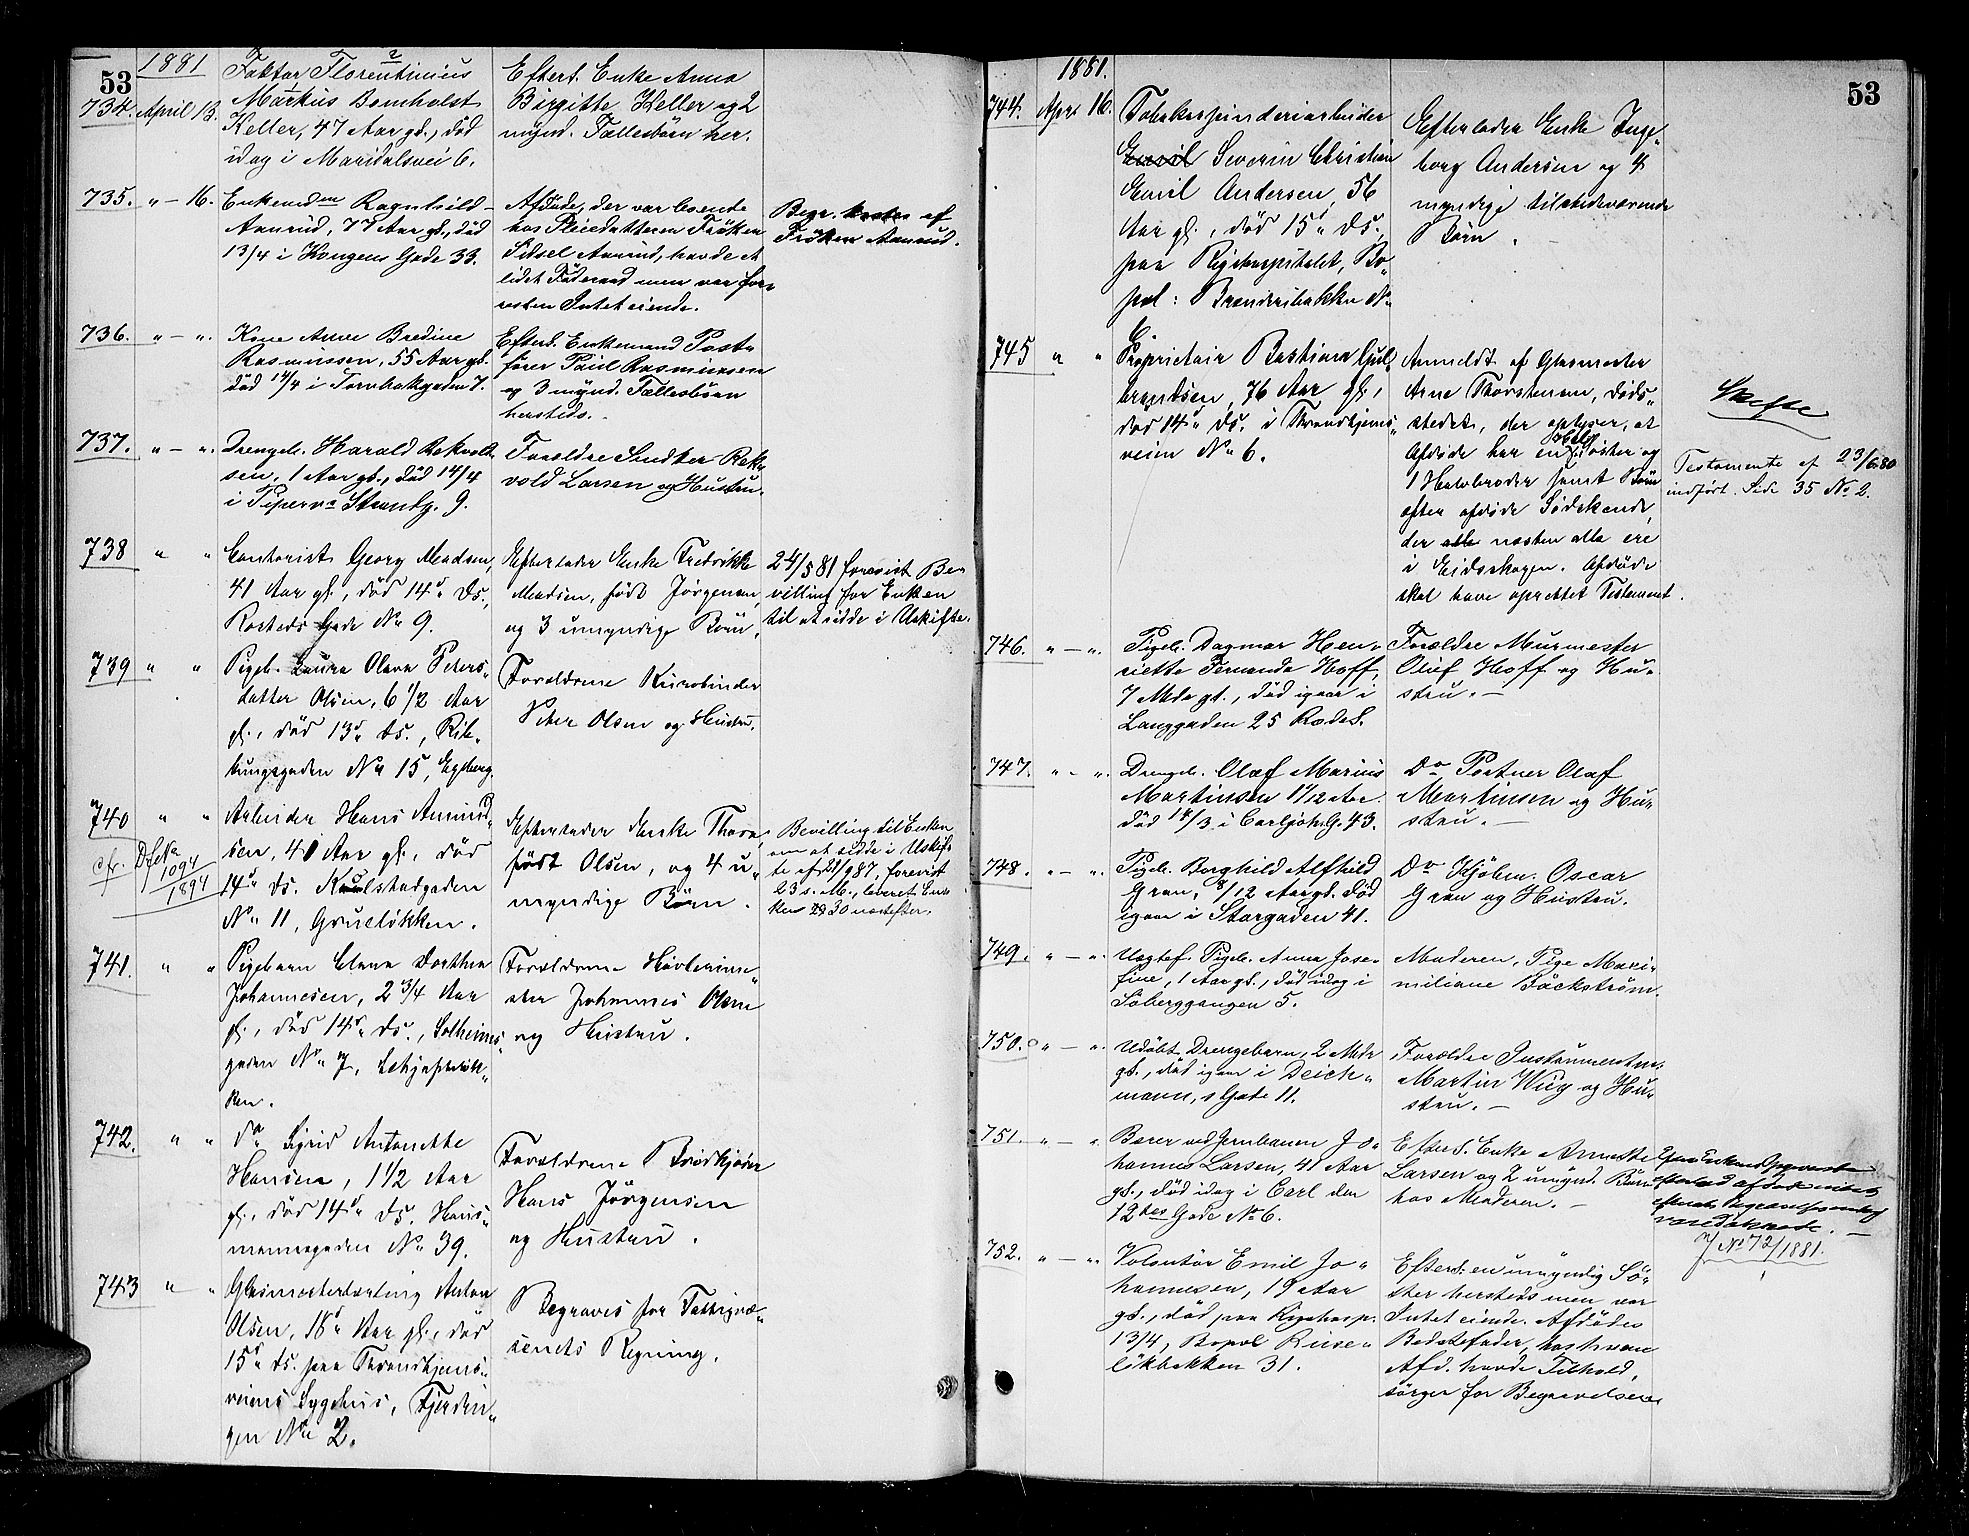 53
1881
734. April 13.
Faktor Florentinius
Markus Bomholst
Keller, 47 Aar gl., død
idag i Maridalsvei 6.
Efterl. Enke Anna
Birgitte Keller og 2
mynd. Fællesbørn her.
735. " - 16.
Enkemdm Ragnhild
Aamrud, 77 Aar gl., død
13/4 i Kongens Gade 33.
Afdøde, der var boende
hos Pleiedatteren Frøken
Sidsel Aamrud, havde et
lidet Føderaad men var for-
resten Intet eiende.
Begr. kostes af
Frøken Aamrud.
736. " - ".
Kone Anne Bredine
Rasmussen, 55 Aar gl.
død 14/4 i Torvbakgaden 7.
Efterl. Enkemand Post-
fører Paul Rasmussen
og 3 mynd. Fællesbørn
hersteds.
737. " - ".
Drengeb. Harald Rekvold-
sen, 1 Aar gl., død 14/4
i Pipervs Strandg. 9.
Forældre Snedker Rek-
vold Larsen og Hustru.
738 " "
Contorist Georg Madsen,
41 Aar gl., død 14d ds.,
Rosteds Gade No 9.
Efterlader Enke Fredrikke
Madsen, født Jørgensen,
og 3 umyndige Børn.
24/5 81 forevist Be-
villing for Enken
til at sidde i Uskifte.
739 " "
Pigeb. Laura Olava Peters-
datter Olsen, 6 1/2 Aar
gl., død 13d ds., Rib-
tungsgaden No 15, Egeberg.
Forældrene
Peter Olsen og Hustru.
740 " "
cfr. Df No
1094
1894
Arbeider Hans Amund-
sen, 41 Aar gl., død
14d ds.
No 11, Grueløkken.
Efterlader Enke Thora,
født Olsen, og 4 u-
myndige Børn.
Bevilling til Enken
om at sidde i Uskif-
te af 21/9 87, forevist
23 s. M., leveret En-
ken 30 næstefter.
741. " "
Pigebarn Clara Dorthea
Johannesen, 2 3/4 Aar
gl., død 14d ds., Solheims-
gaden No 7,
ken.
Forældrene Høvlerime-
ster Johannes Olsen
og Hustru.
742. " "
do Sigrid Antonette
Hansen, 1 1/2 Aar
gl., død 14d ds. Haus-
mannsgaden No 39.
Forældrene Brødkjører
Hans Jörgensen
og Hustru.
743 " "
Glasmesterlærling Anton
Olsen, 18d Aar gl., død
15d ds. paa Throndhjems-
veiens Sygehus, Fjerdin-
gen No 2.
Begraves for Fattigvæ-
senets Regning.
53
1881.
744. Apr. 16.
Tobakspinderiarbeider
Emil Severin Christian
Emil Andersen, 56
Aar gl., død 15d ds.,
paa Rigshospitalet, Bo-
pæl: Brænderibakken No
6.
Efterlader Enke Inge-
borg Andersen og 4
myndige tilstedeværende
Børn.
745 " "
Proprietair Bastian Gul-
brandsen, 76 Aar gl.,
død 14d ds. i Throndhjems-
veien No 6.
Anmeldt af Glasmester
Arne Thorstensen, Døds-
stedet, der oplyser, at
Afdøde har en Halv Søster og
1 Halvbroder samt Børn
efter afdøde Sødskende,
der alle næsten alle ere
i Eidsskogen. Afdøde
skal have oprettet Testament.
Skifte
Testamente af 23/6 80
indført Side 35 No 2.
746. " - ".
Pigeb. Dagmar Hen-
riette Fernanda Hoff,
7 Mdr gl., død igaar i
Langgaden 25 Rodel.
Forældre Murmester
Oluf Hoff og Hu-
stru.
747. " - ".
Drengeb. Olaf Marius
Martinsen 11/12 Aar
død 14/3 i Carljoh.G. 43.
Do Portner Olaf
Martinsen og Hu-
stru.
748. " - ".
Pigeb. Borghild Alfhild
Gran, 8/12 Aar gl. død
igaar i Storgaden 41.
Do Kjøbm. Oscar
Gran og Hustru.
749. " - ".
Uægtef. Pigeb. Anna Jose-
fine, 1 Aar gl., død idag i
Søberggangen 5.
Moderen, Pige Maxi-
miliane Bäckström.
750. " - ".
Udøbt Drengebarn, 2 Mdr
gl., død igaar i Deich-
mann,s Gade 11.
Forældre Instrumentm.
Martin Wiig og Hu-
stru.
751. " - "
Bærer ved Jernbanen Jo-
hannes Larsen, 41 Aar
gl., død idag i Carl den
12tes Gade No 6.
Efterl. Enke Annette
Larsen og 2 umynd. Børn
hos Moderen.
No 72/1881.
752. " - "
Volontør Emil Jo-
hannesen, 19 Aar
gl., død paa Rigshosp.
13/4, Bopæl Ruse-
løkbakken 31.
Efterl. en umyndig Sø-
ster hersteds men var
Intet eiende. Afdødes
Bedstefader, hos hvem
Afd. havde Tilhold,
sørger for Begravelsen.